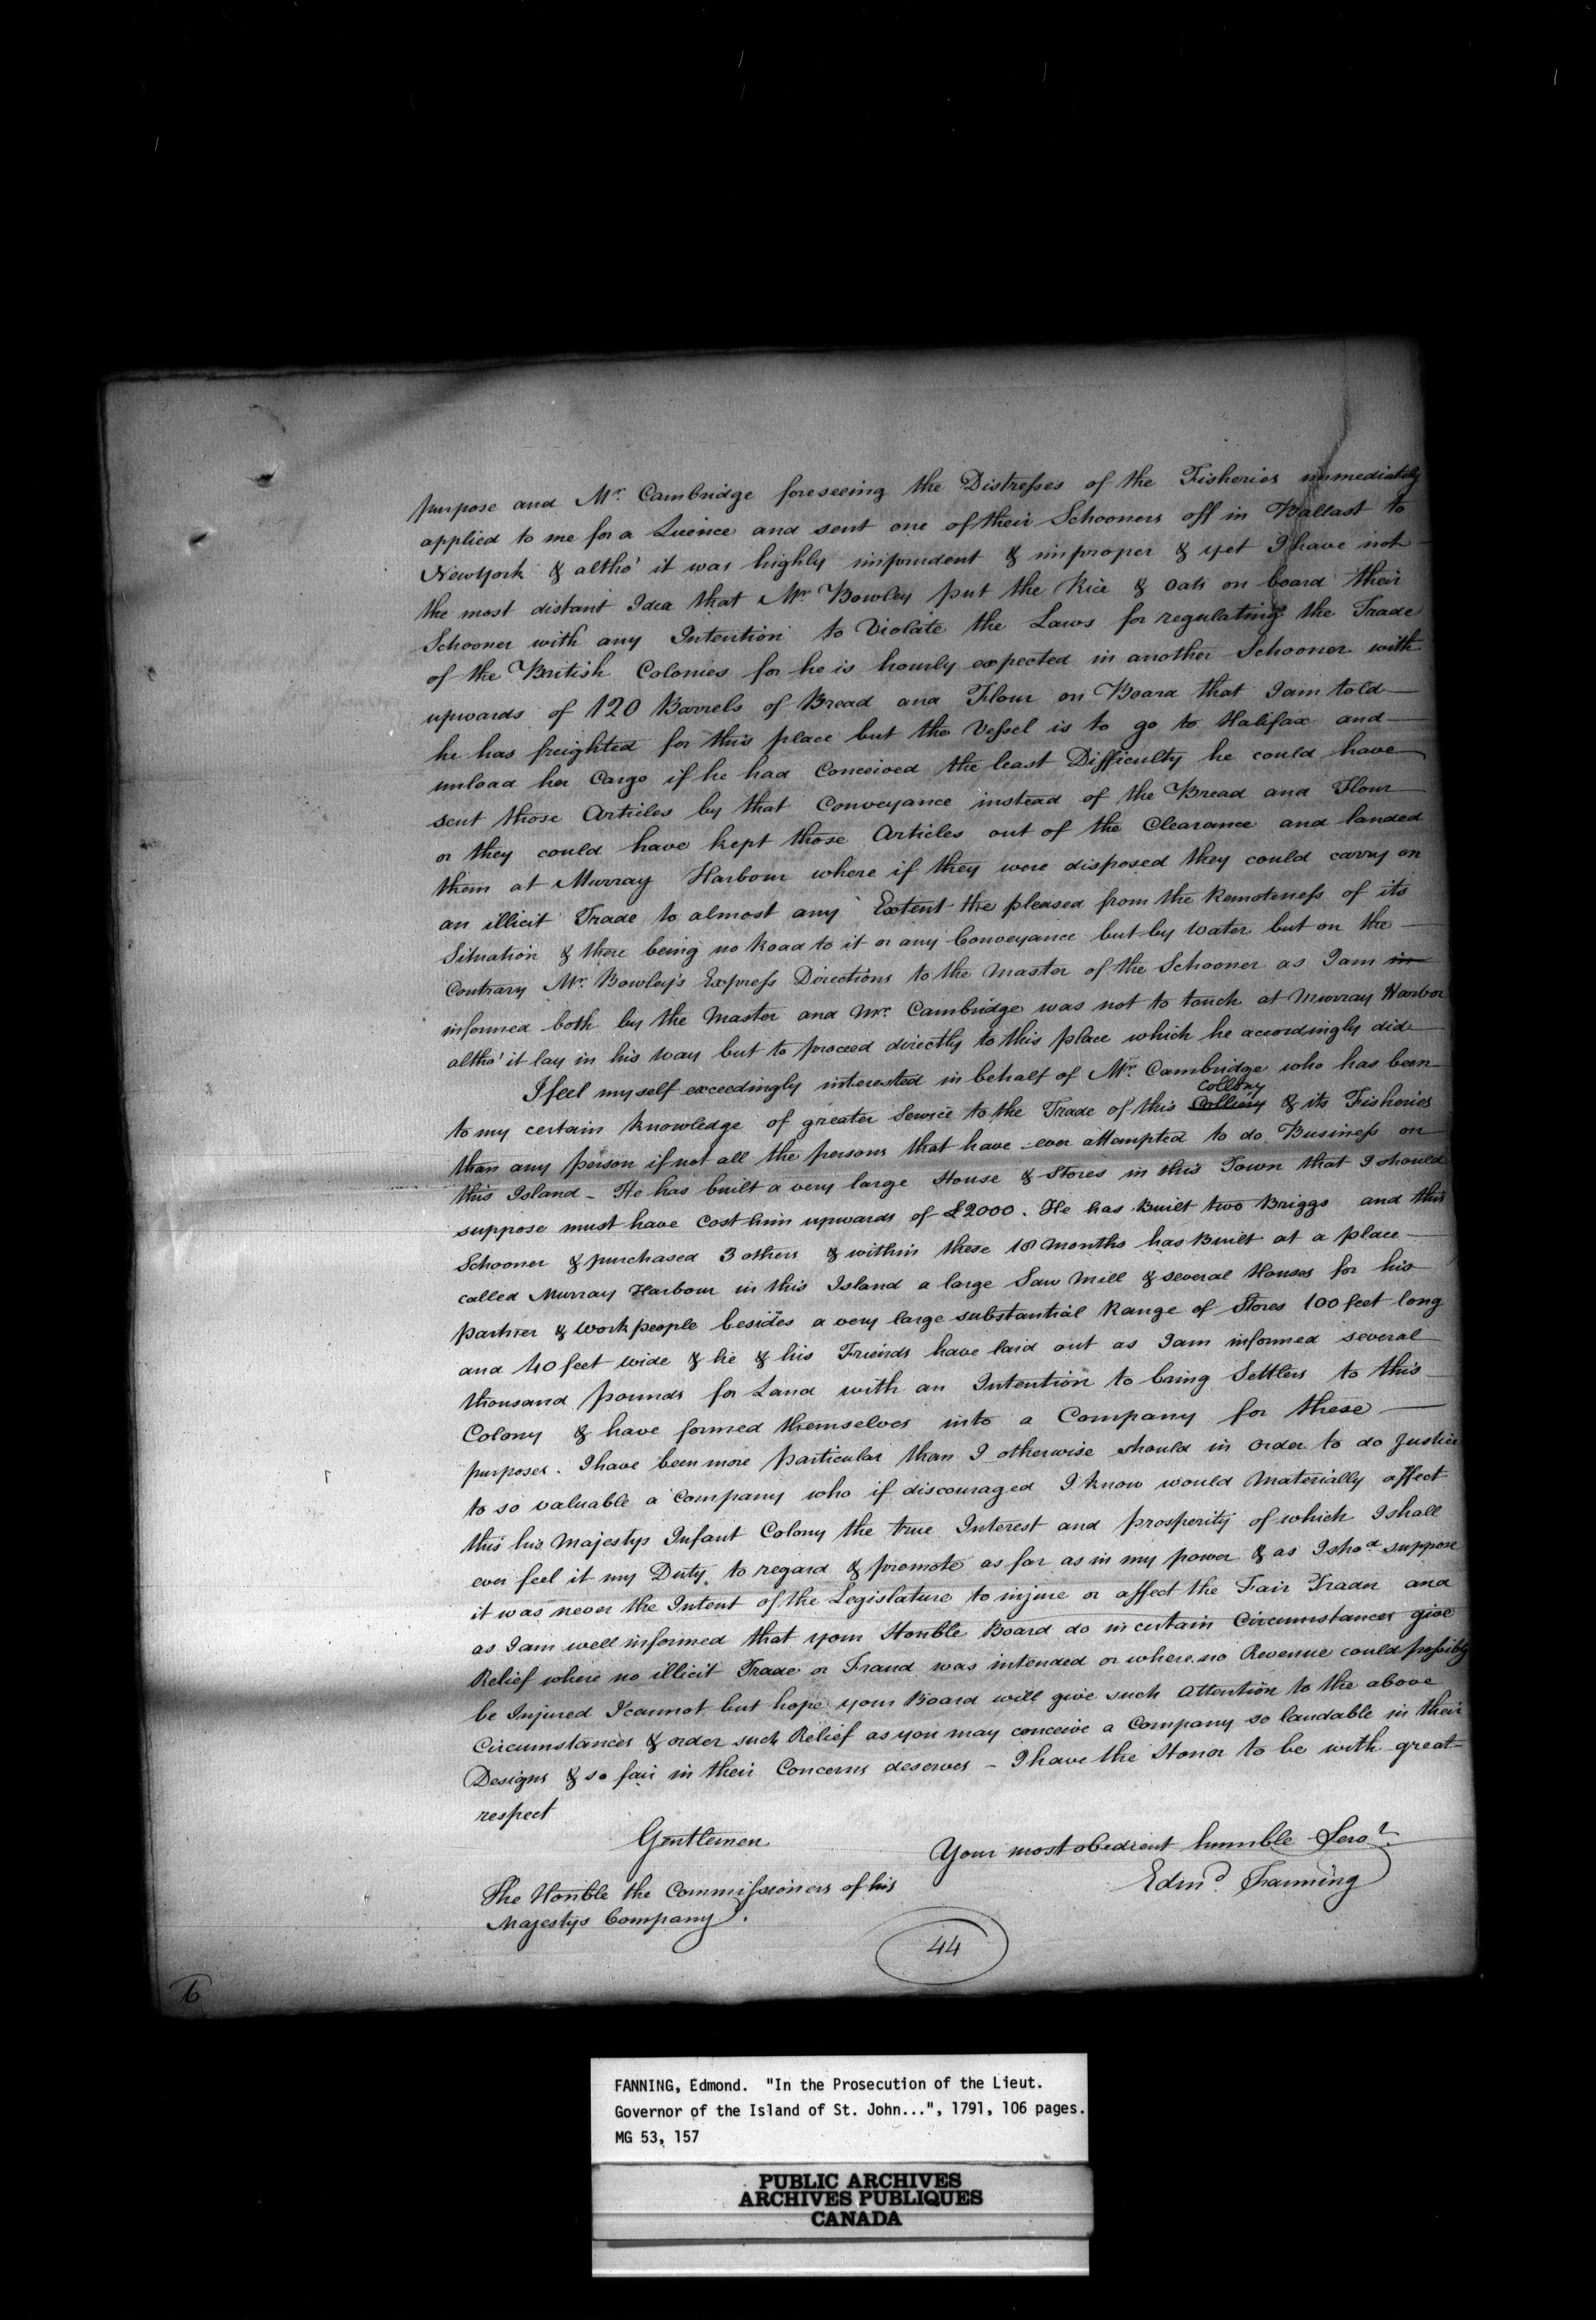 purpose and Mr. Cambridge foreseeing the Distresses of the Fisheries immediately
applied to me for a Licence and sent one of their Schooners off in Ballast to
New York & altho' it was highly imprudent & improper & yet I have not
the most distant Idea that Mr. Bowley put the Rice & Oats on board their
Schooner with any Intention to Violate the Laws for regulating the Trade
of the British Colonies for he is hourly expected in another Schooner with
upwards of 120 Barrels of Bread and Flour on Board that I am told
he has freighted for this place but the Vessel is to go to Halifax and
unload her Cargo if he had Conceived the least Difficulty he could have
sent those Articles by that Conveyance instead of the Bread and Flour
or they could have kept those Articles out of the Clearance and landed
them at Murray Harbour where if they were disposed they could carry on
an illicit Trade to almost any Extent the pleased from the Remoteness of its
Situation & there being no Road to it or any Conveyance but by Water but on the
Contrary Mr. Bowley's Express Directions to the Master of the Schooner as I am in
informed both by the Master and Mr. Cambridge was not to touch at Murray Harbor
altho' it lay in his Way but to proceed directly to this place which he accordingly did
I feel myself exceedingly interested in behalf of Mr. Cambridge who has been
Collony
to my certain knowledge of greater Service to the Trade of this Colliery & its Fisheries
than any person if not all the persons that have ever attempted to do Business on
this Island - He has built a very large House & Stores in this Town that I should
suppose must have Cost him upwards of £2000. He has Built two Briggs and this
Schooner & purchased 3 others & within these 18 months has Built at a place
called Murray Harbour in this Island a large Saw Mill & several Houses for his
partner & workpeople besides a very large substantial Range of Stores 100 feet long
and 40 feet wide & he & his Friends have laid out as I am informed several
thousand pounds for Land with an Intention to bring Settlers to this
Colony & have formed themselves into a Company for these
purposes. I have been more particular than I otherwise should in order to do Justice
to so valuable a Company who if discouraged I know would Materially affect
this his Majestys Infant Colony the true Interest and prosperity of which I shall
ever feel it my Duty to regard & promote as far as in my power & as I shod suppose
it was never the Intent of the Legislature to injure or affect the Fair Trader and
as I am well informed that your Honble Board do in certain Circumstances give
Relief where no illicit Trade or Fraud was intended or where no Revenue could possibly
be Injured I cannot but hope your Board will give such Attention to the above
Circumstances & order such Relief as you may conceive a Company so laudable in their
Designs & so fair in their Concerns deserves - I have the Honor to be with great
respect
Gentlemen
Your most obedient humble Servt.
Edmd. Fanning
The Honble the Commissioners of his
Majestys Company.
44
6
FANNING, Edmond. "In the Prosecution of the Lieut.
Governor of the Island of St. John...", 1791, 106 pages.
MG 53, 157
PUBLIC ARCHIVES
ARCHIVES PUBLIQUES
CANADA